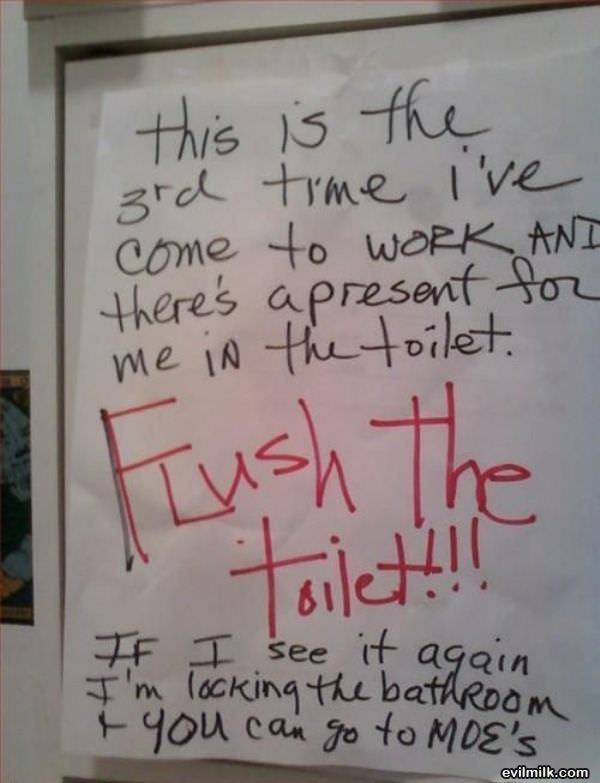 this is the
3rd time i've
come to WORK AND
there's a present for
me iN the toilet.
FLush The
toilet!!!
IF I see it again
I'm locking the bathRoom
+ YOU can go to MOE's
evilmilk.com